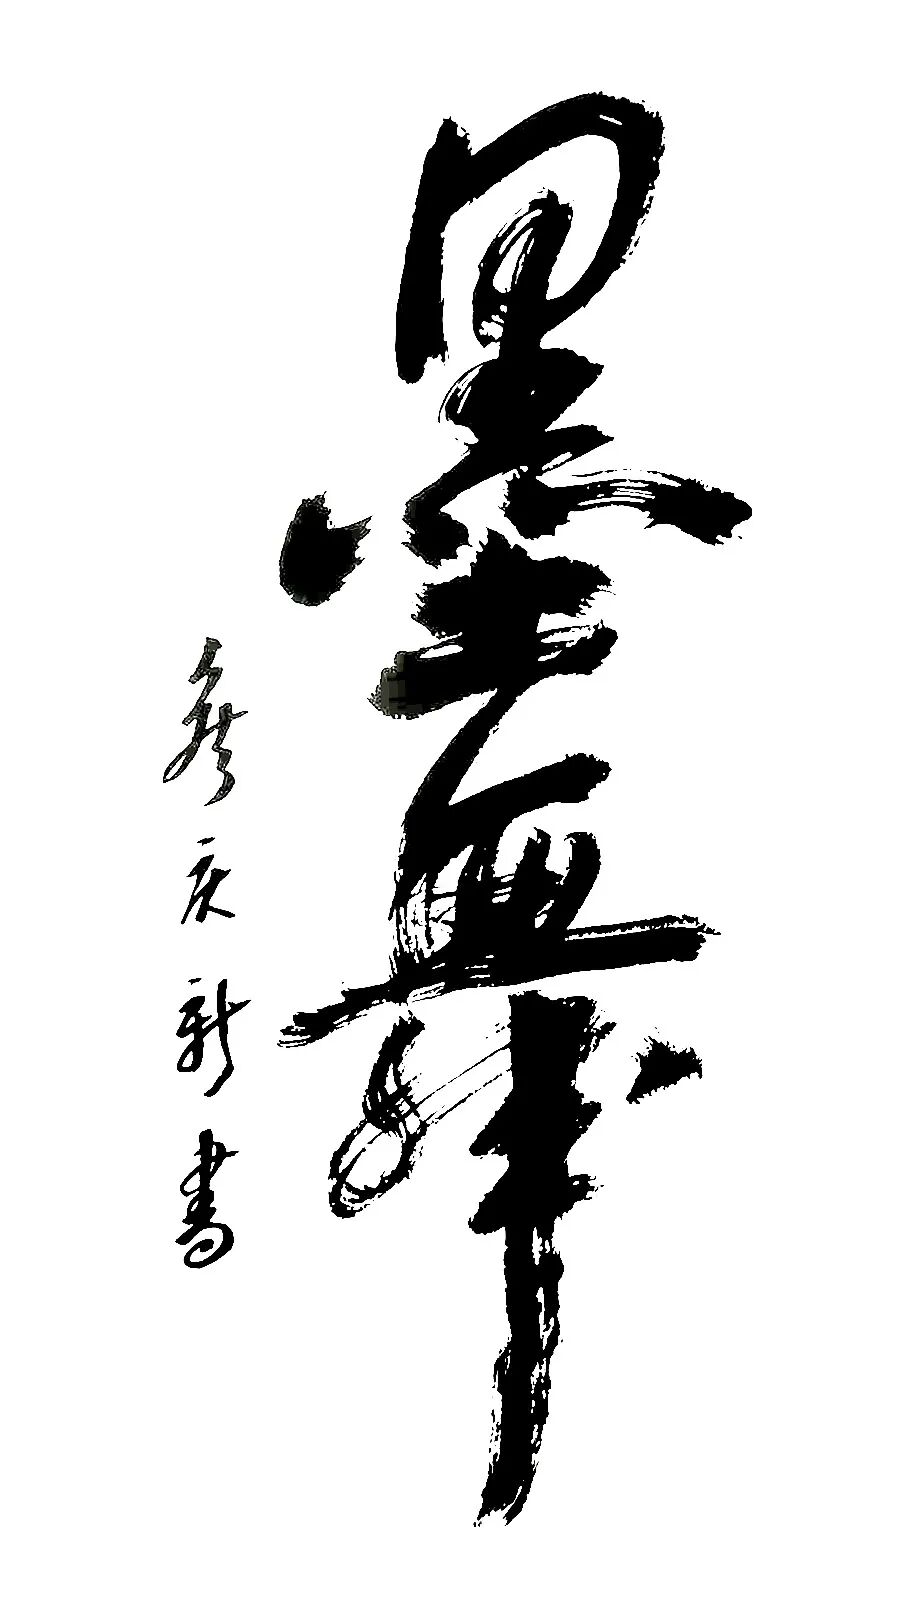 墨舞
庆新書